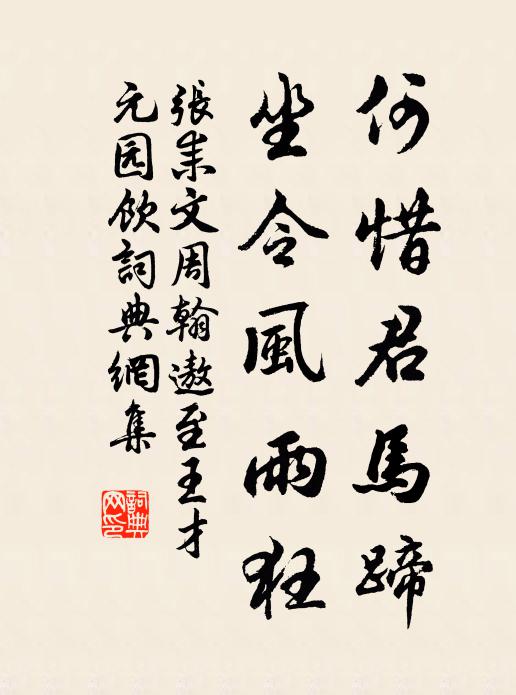 何惜君馬蹄
坐令風雨狂
張耒文周翰遨至王才
元园飲詞典網集
詞典網印